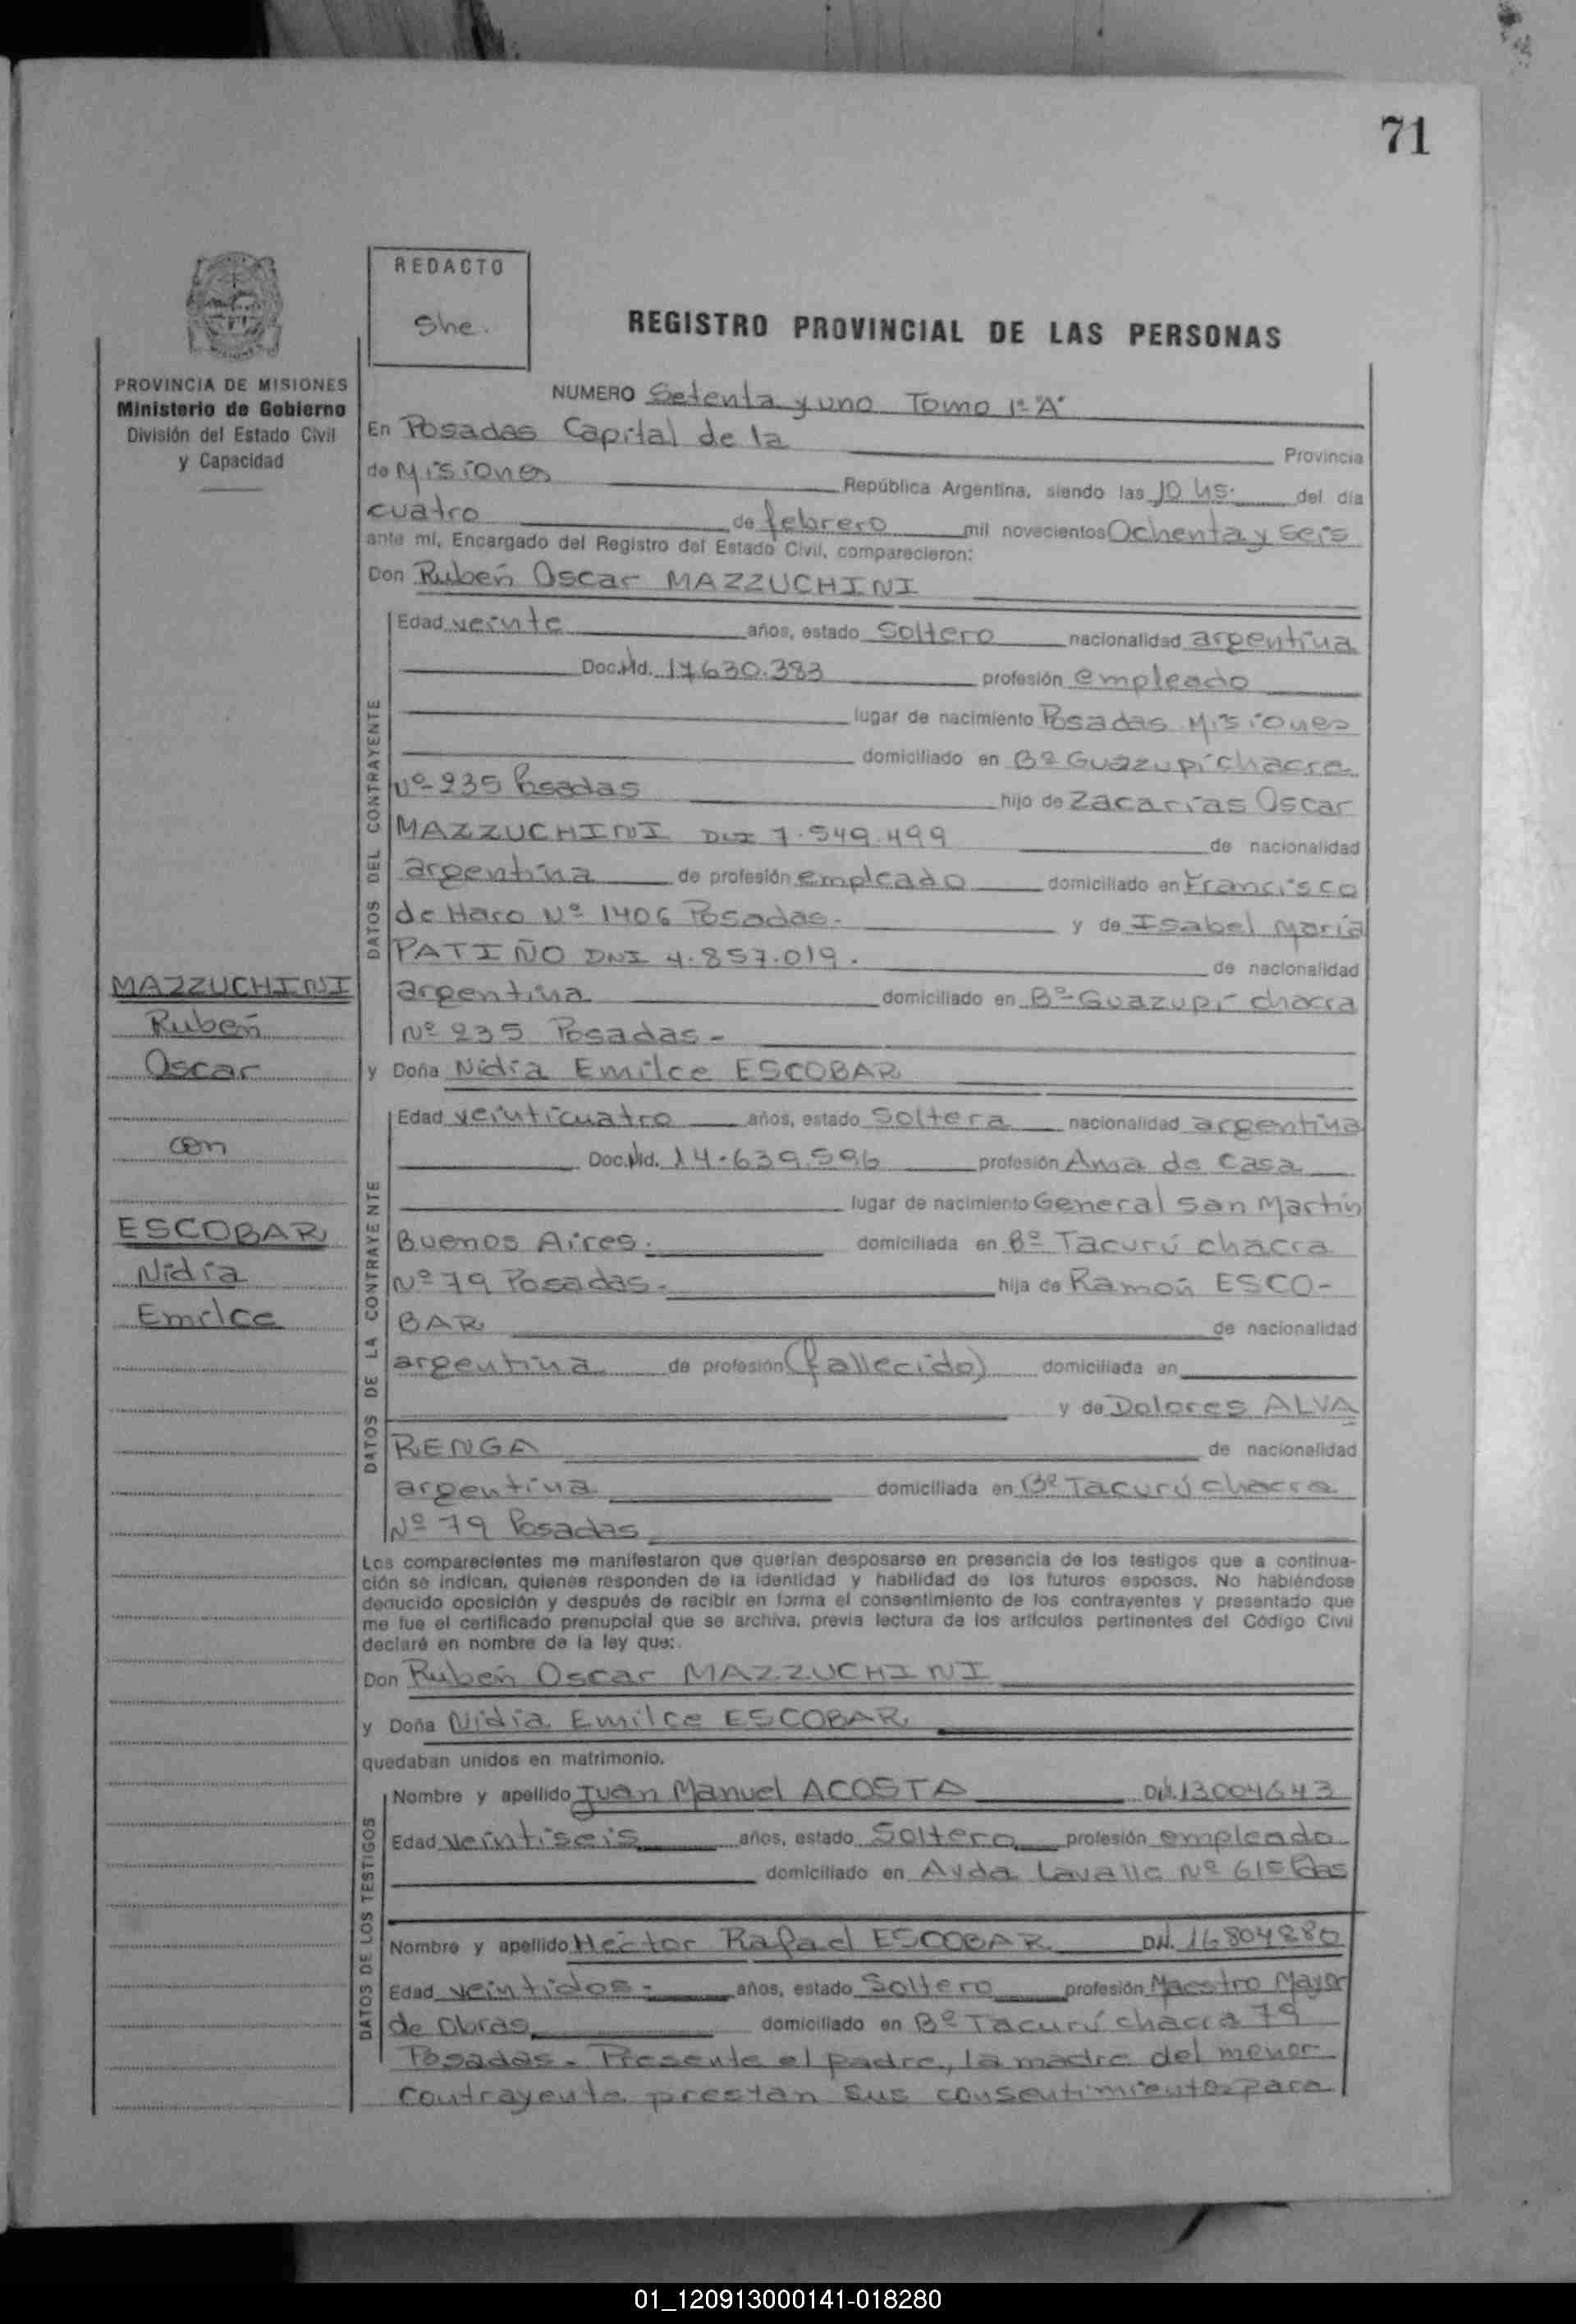 71
REDACTO
She.
REGISTRO PROVINCIAL DE LAS PERSONAS
PROVINCIA DE MISIONES
Ministerio de Gobierno
División del Estado Civil
y Capacidad
NUMERO Setenta y uno Tomo 1º "A"
En Posadas Capital de la Provincia
de Misiones República Argentina, siendo las 10 hs. del día
cuatro de febrero mil novecientos Ochenta y seis
ante mí, Encargado del Registro del Estado Civil, comparecieron:
Don Rubén Oscar MAZZUCHINI
DATOS DEL CONTRAYENTE
Edad veinte años, estado Soltero nacionalidad argentina
Doc. Nd. 17.630.383 profesión empleado
lugar de nacimiento Posadas Misiones
domiciliado en Bº Guazupí chacra
Nº 235 Posadas hijo de Zacarías Oscar
MAZZUCHINI DNI 7.549.499 de nacionalidad
argentina de profesión empleado domiciliado en Francisco
de Haro Nº 1406 Posadas.- y de Isabel María
PATIÑO DNI 4.857.019. de nacionalidad
argentina domiciliado en Bº Guazupí chacra
Nº 235 Posadas -
MAZZUCHINI
Rubén
Oscar
con
ESCOBAR
Nidia
Emilce
y Doña Nidia Emilce ESCOBAR
DATOS DE LA CONTRAYENTE
Edad veinticuatro años, estado Soltera nacionalidad argentina
Doc. Nd. 14.639.596 profesión Ama de Casa
lugar de nacimiento General San Martín
Buenos Aires. domiciliada en Bº Tacurú chacra
Nº 79 Posadas.- hija de Ramón ESCO-
BAR de nacionalidad
argentina de profesión (fallecido) domiciliada en
y de Dolores ALVA
RENGA de nacionalidad
argentina domiciliada en Bº Tacurú chacra
Nº 79 Posadas
Los comparecientes me manifestaron que querían desposarse en presencia de los testigos que a continua-
ción se indican, quienes responden de la identidad y habilidad de los futuros esposos. No habiéndose
deducido oposición y después de recibir en forma el consentimiento de los contrayentes y presentado que
me fue el certificado prenupcial que se archiva, previa lectura de los artículos pertinentes del Código Civil
declaré en nombre de la ley que:
Don Rubén Oscar MAZZUCHINI
y Doña Nidia Emilce ESCOBAR
quedaban unidos en matrimonio.
DATOS DE LOS TESTIGOS
Nombre y apellido Juan Manuel ACOSTA DNI. 13004643
Edad veintiseis años, estado Soltero profesión empleado
domiciliado en Avda Lavalle Nº 615 Pdas
Nombre y apellido Hector Rafael ESCOBAR DNI. 16804280
Edad veintidos - años, estado Soltero profesión Maestro Mayor
de Obras domiciliado en Bº Tacurú chacra 79
Posadas - Presente el padre, la madre del menor
contrayente prestan sus consentimientos para
01_120913000141-018280